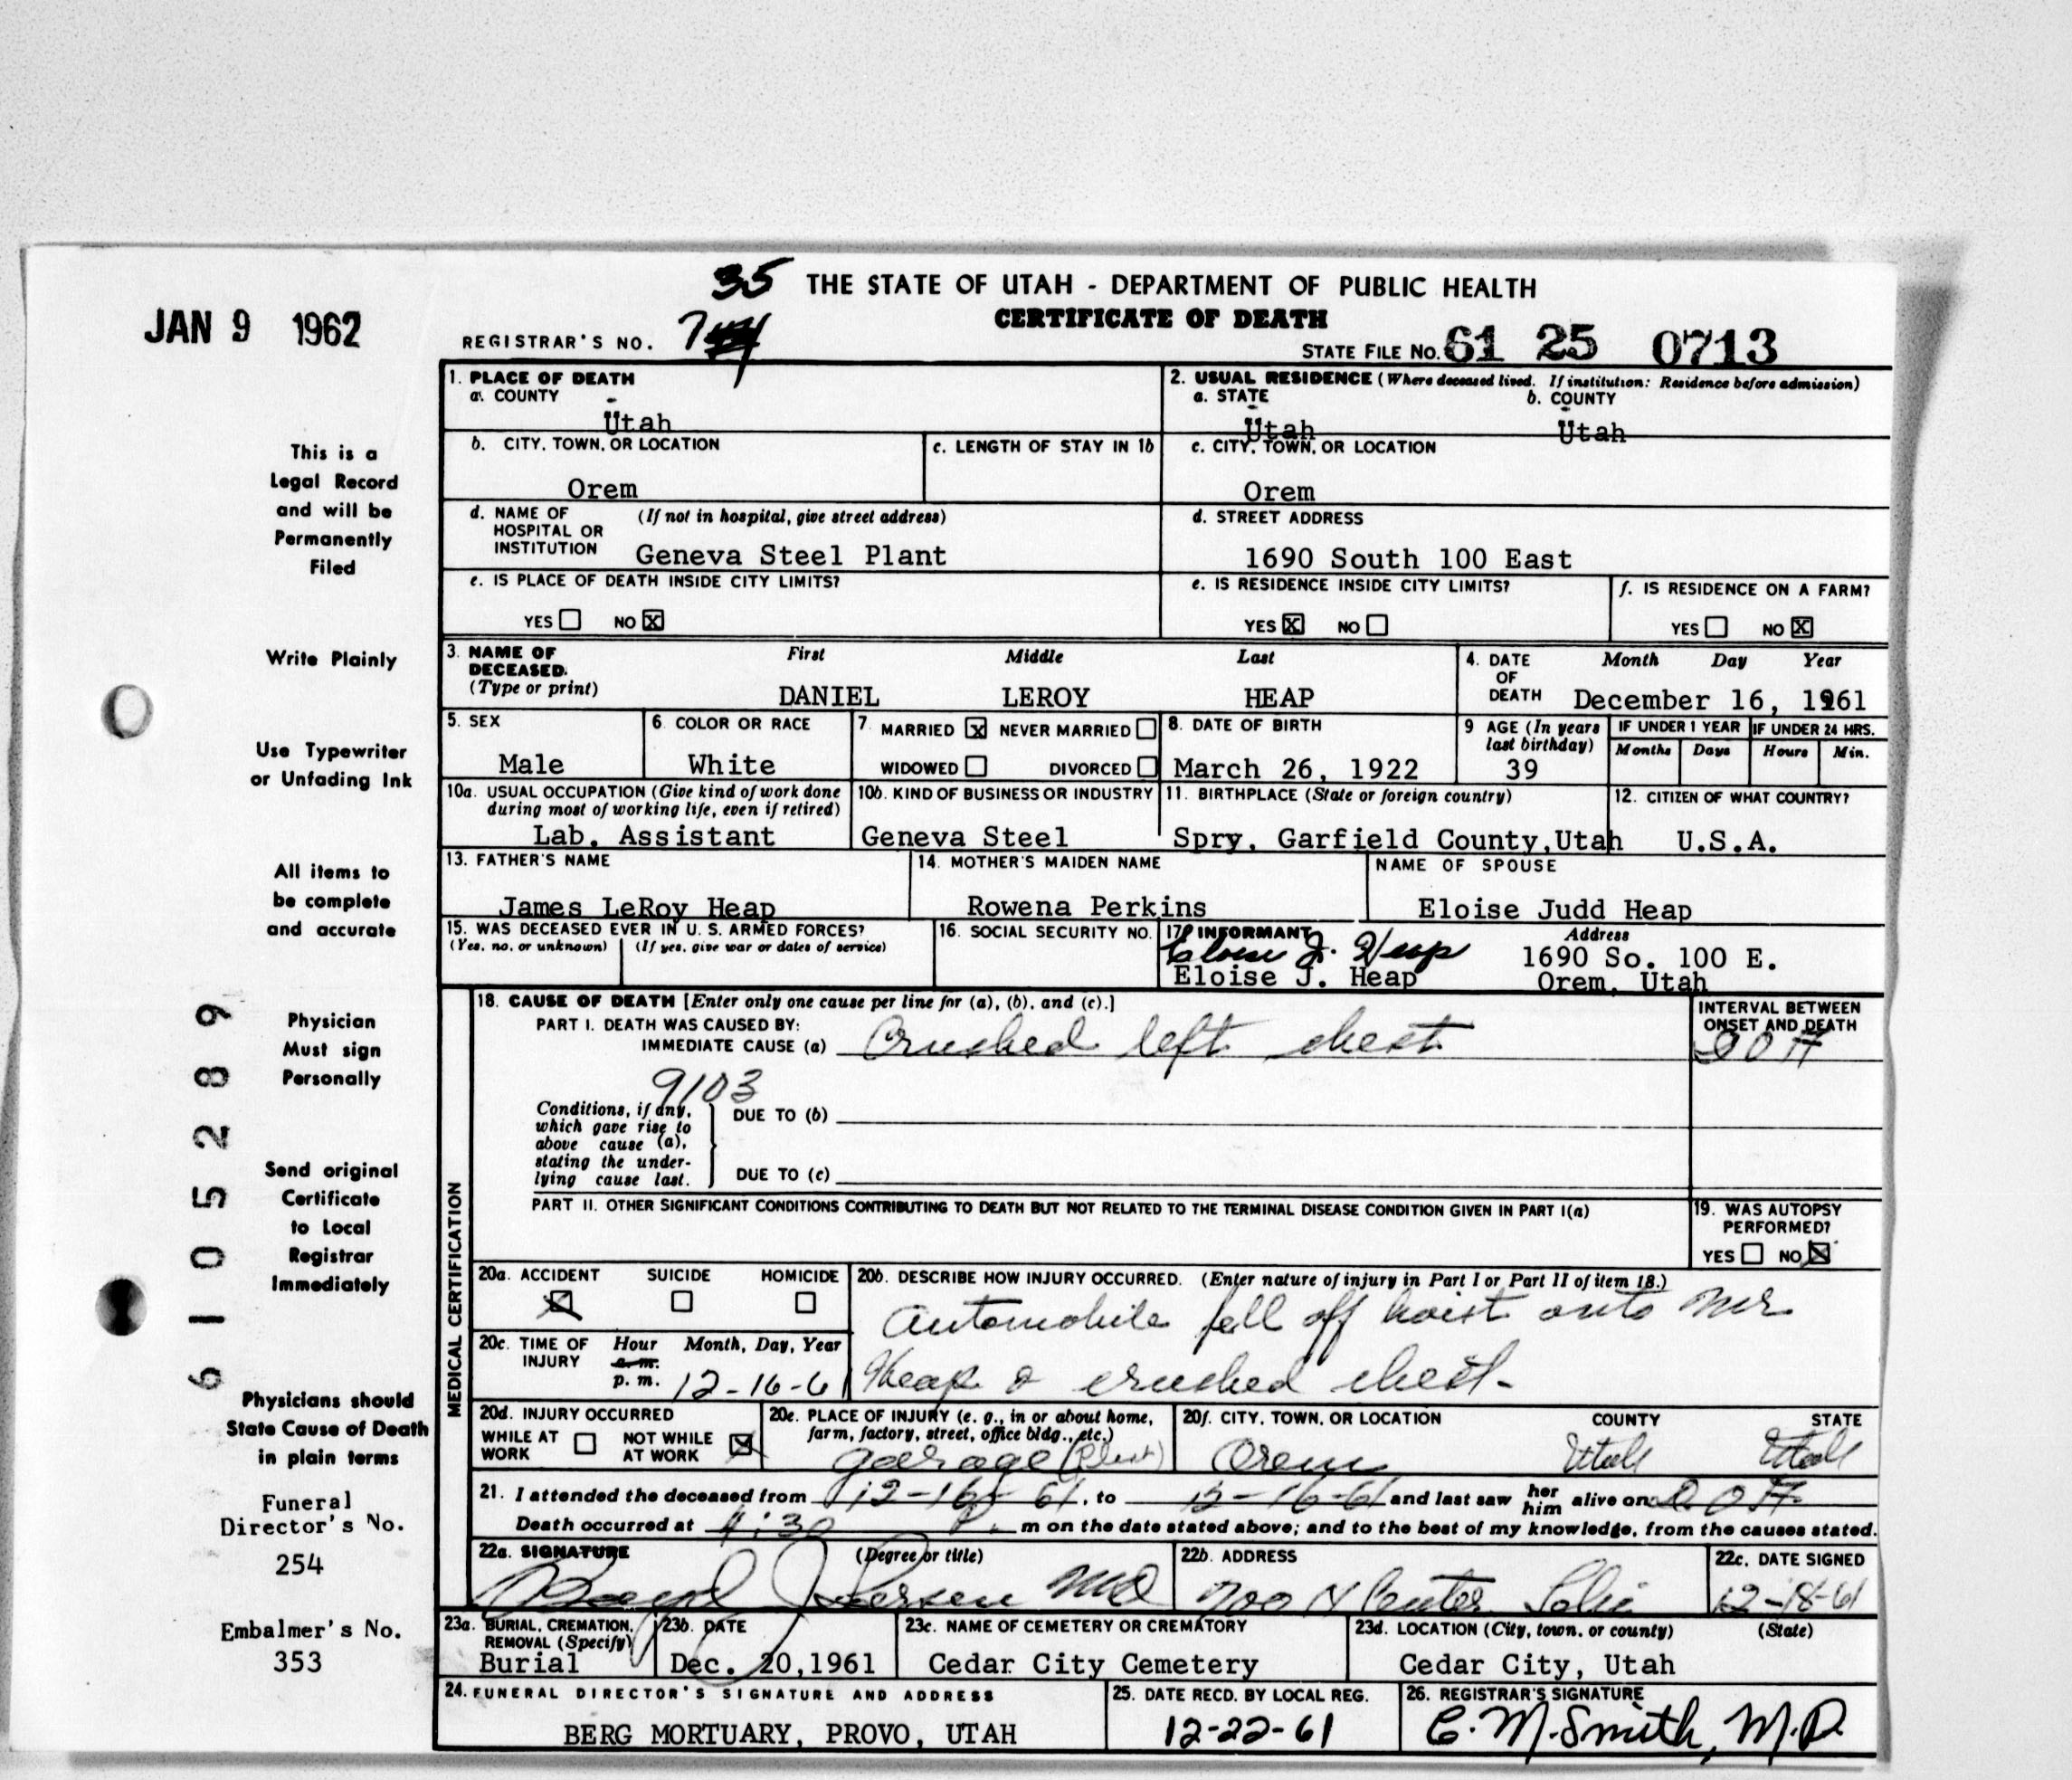 35 THE STATE OF UTAH - DEPARTMENT OF PUBLIC HEALTH
JAN 9 1962
CERTIFICATE OF DEATH
REGISTRAR'S NO. 7
STATE FILE NO. 61 25 0713
1. PLACE OF DEATH
a. COUNTY
Utah
2. USUAL RESIDENCE (Where deceased lived. If institution: Residence before admission)
a. STATE b. COUNTY
Utah Utah
b. CITY, TOWN, OR LOCATION
Orem
c. LENGTH OF STAY IN 1b
c. CITY, TOWN, OR LOCATION
Orem
d. NAME OF HOSPITAL OR INSTITUTION (If not in hospital, give street address)
Geneva Steel Plant
d. STREET ADDRESS
1690 South 100 East
e. IS PLACE OF DEATH INSIDE CITY LIMITS?
YES NO X
e. IS RESIDENCE INSIDE CITY LIMITS?
YES X NO
f. IS RESIDENCE ON A FARM?
YES NO X
3. NAME OF DECEASED. (Type or print)
First Middle Last
DANIEL LEROY HEAP
4. DATE OF DEATH Month Day Year
December 16, 1961
5. SEX
Male
6. COLOR OR RACE
White
7. MARRIED X NEVER MARRIED
WIDOWED DIVORCED
8. DATE OF BIRTH
March 26, 1922
9 AGE (In years last birthday)
39
IF UNDER 1 YEAR IF UNDER 24 HRS.
Months Days Hours Min.
10a. USUAL OCCUPATION (Give kind of work done during most of working life, even if retired)
Lab. Assistant
10b. KIND OF BUSINESS OR INDUSTRY
Geneva Steel
11. BIRTHPLACE (State or foreign country)
Spry, Garfield County,Utah
12. CITIZEN OF WHAT COUNTRY?
U.S.A.
13. FATHER'S NAME
James LeRoy Heap
14. MOTHER'S MAIDEN NAME
Rowena Perkins
NAME OF SPOUSE
Eloise Judd Heap
15. WAS DECEASED EVER IN U. S. ARMED FORCES?
(Yes, no, or unknown) (If yes, give war or dates of service)
16. SOCIAL SECURITY NO.
17. INFORMANT Address
Eloise J. Heap
Eloise J. Heap
1690 So. 100 E.
Orem, Utah
MEDICAL CERTIFICATION
18. CAUSE OF DEATH [Enter only one cause per line for (a), (b), and (c).]
PART I. DEATH WAS CAUSED BY:
IMMEDIATE CAUSE (a) Crushed left chest
INTERVAL BETWEEN ONSET AND DEATH
DOA
9103
Conditions, if any, which gave rise to above cause (a), stating the underlying cause last.
DUE TO (b)
DUE TO (c)
PART II. OTHER SIGNIFICANT CONDITIONS CONTRIBUTING TO DEATH BUT NOT RELATED TO THE TERMINAL DISEASE CONDITION GIVEN IN PART I(a)
19. WAS AUTOPSY PERFORMED?
YES NO X
20a. ACCIDENT SUICIDE HOMICIDE
X
20b. DESCRIBE HOW INJURY OCCURRED. (Enter nature of injury in Part I or Part II of item 18.)
Automobile fell off hoist onto Mr
Heap & crushed chest-
20c. TIME OF INJURY Hour Month, Day, Year
a. m.
p. m. 12-16-61
20d. INJURY OCCURRED
WHILE AT WORK NOT WHILE AT WORK X
20e. PLACE OF INJURY (e. g., in or about home, farm, factory, street, office bldg., etc.)
garage (Plant)
20f. CITY, TOWN, OR LOCATION COUNTY STATE
Orem Utah Utah
21. I attended the deceased from 12-16-61, to 12-16-61 and last saw her him alive on DOA
Death occurred at 4:30 P. m on the date stated above; and to the best of my knowledge, from the causes stated.
22a. SIGNATURE (Degree or title)
Boyd J Larsen MD
22b. ADDRESS
700 N Center Lehi
22c. DATE SIGNED
12-18-61
23a. BURIAL, CREMATION, REMOVAL (Specify)
Burial
23b. DATE
Dec. 20,1961
23c. NAME OF CEMETERY OR CREMATORY
Cedar City Cemetery
23d. LOCATION (City, town, or county) (State)
Cedar City, Utah
24. FUNERAL DIRECTOR'S SIGNATURE AND ADDRESS
BERG MORTUARY, PROVO, UTAH
25. DATE RECD. BY LOCAL REG.
12-22-61
26. REGISTRAR'S SIGNATURE
C. M. Smith, M.D.
This is a
Legal Record
and will be
Permanently
Filed
Write Plainly
Use Typewriter
or Unfading Ink
All items to
be complete
and accurate
Physician
Must sign
Personally
Send original
Certificate
to Local
Registrar
Immediately
Physicians should
State Cause of Death
in plain terms
Funeral
Director's No.
254
Embalmer's No.
353
6105289